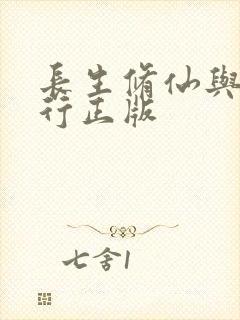 長生脩仙與
行正版
七舍1